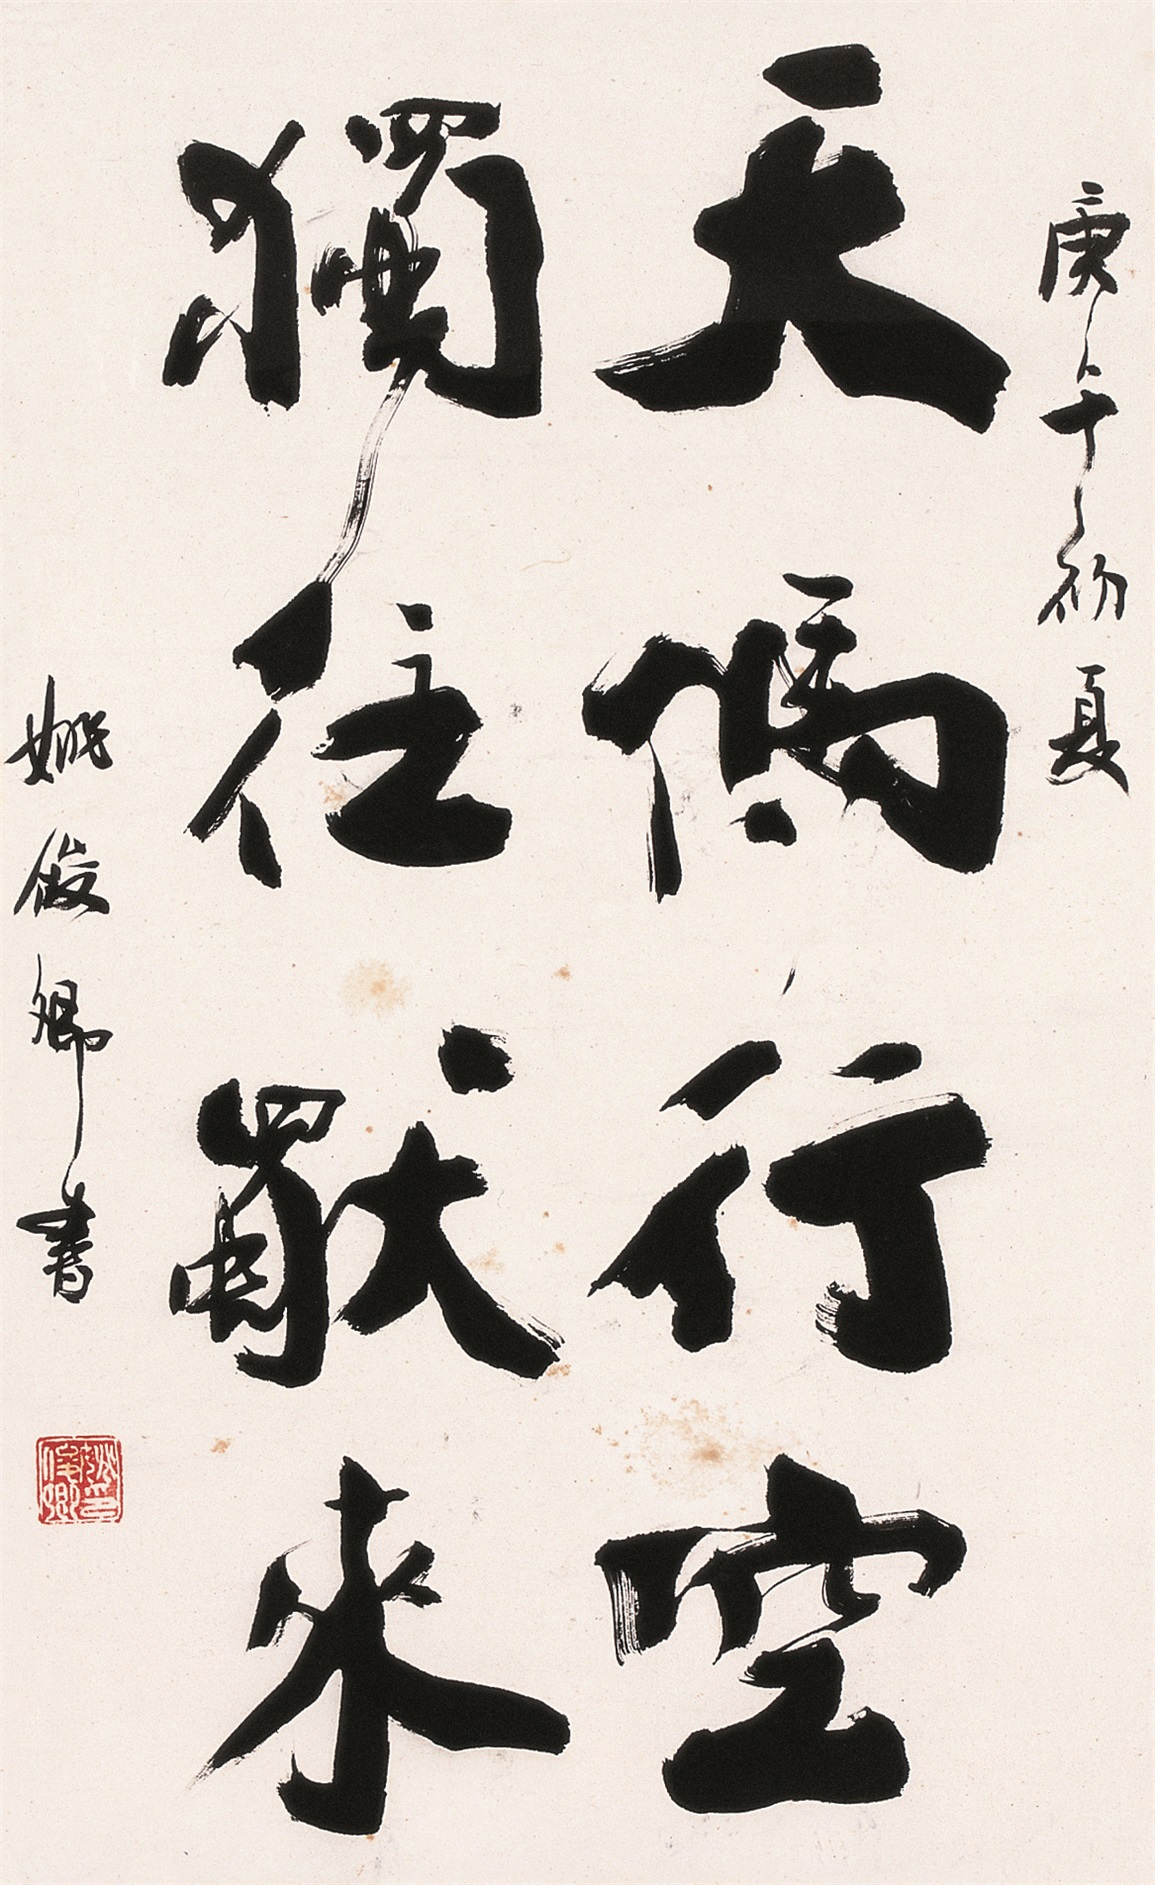 庚午初夏
天馬行空
獨往獨來
姚俊卿書
姚俊卿印